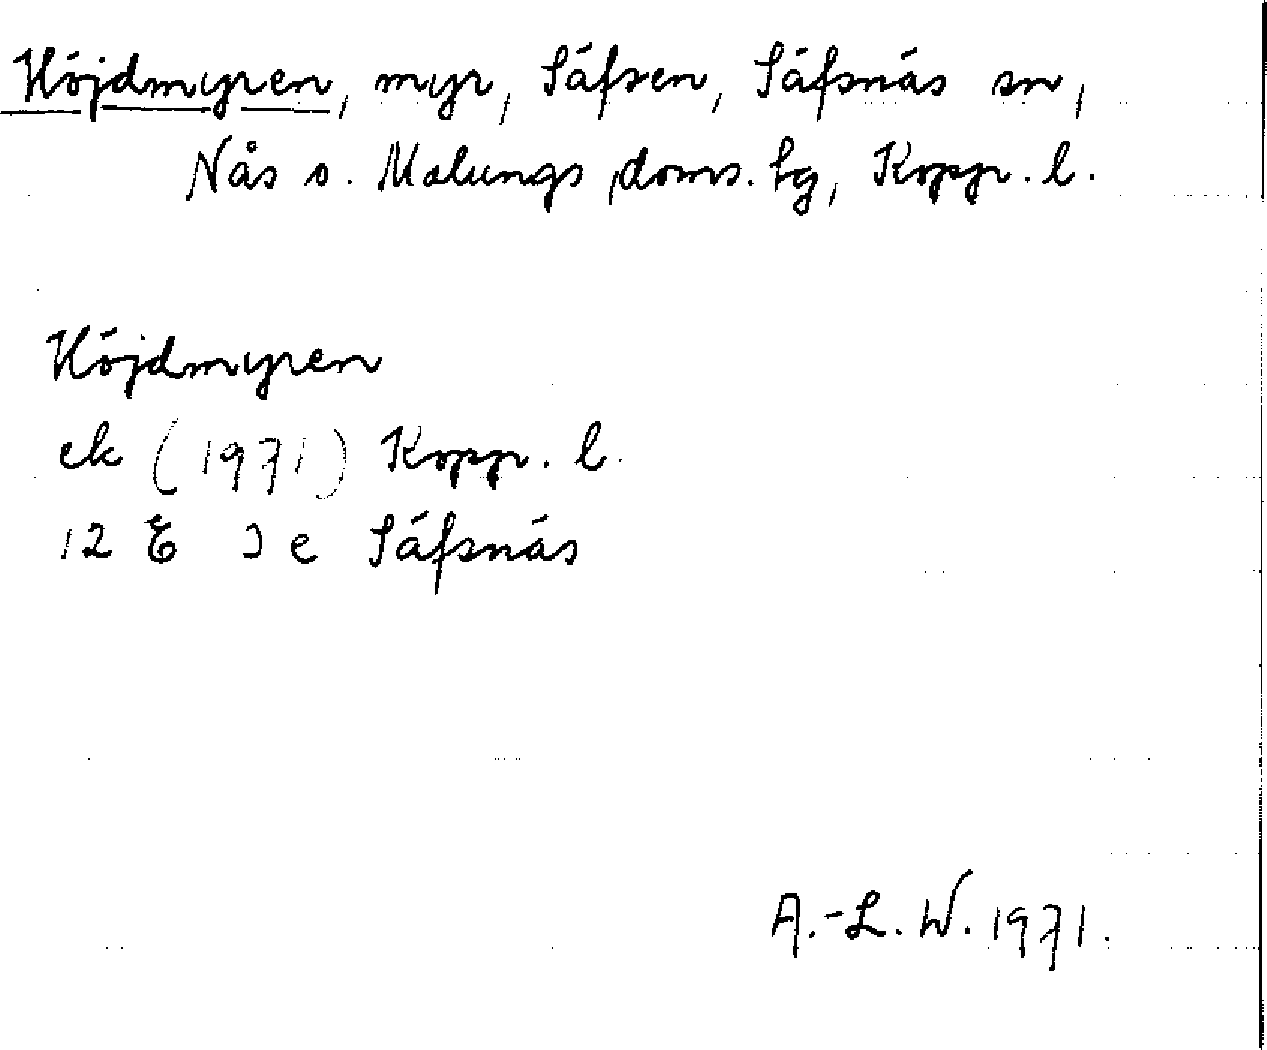 Höjdmyren, myr, Säfsen, Säfsnäs sn,
Nås o. Malungs doms. hg, Koppr. l.
Höjdmyren
ek (1971) Koppr. l.
12 E J e Säfsnäs
A.-L. W. 1971.